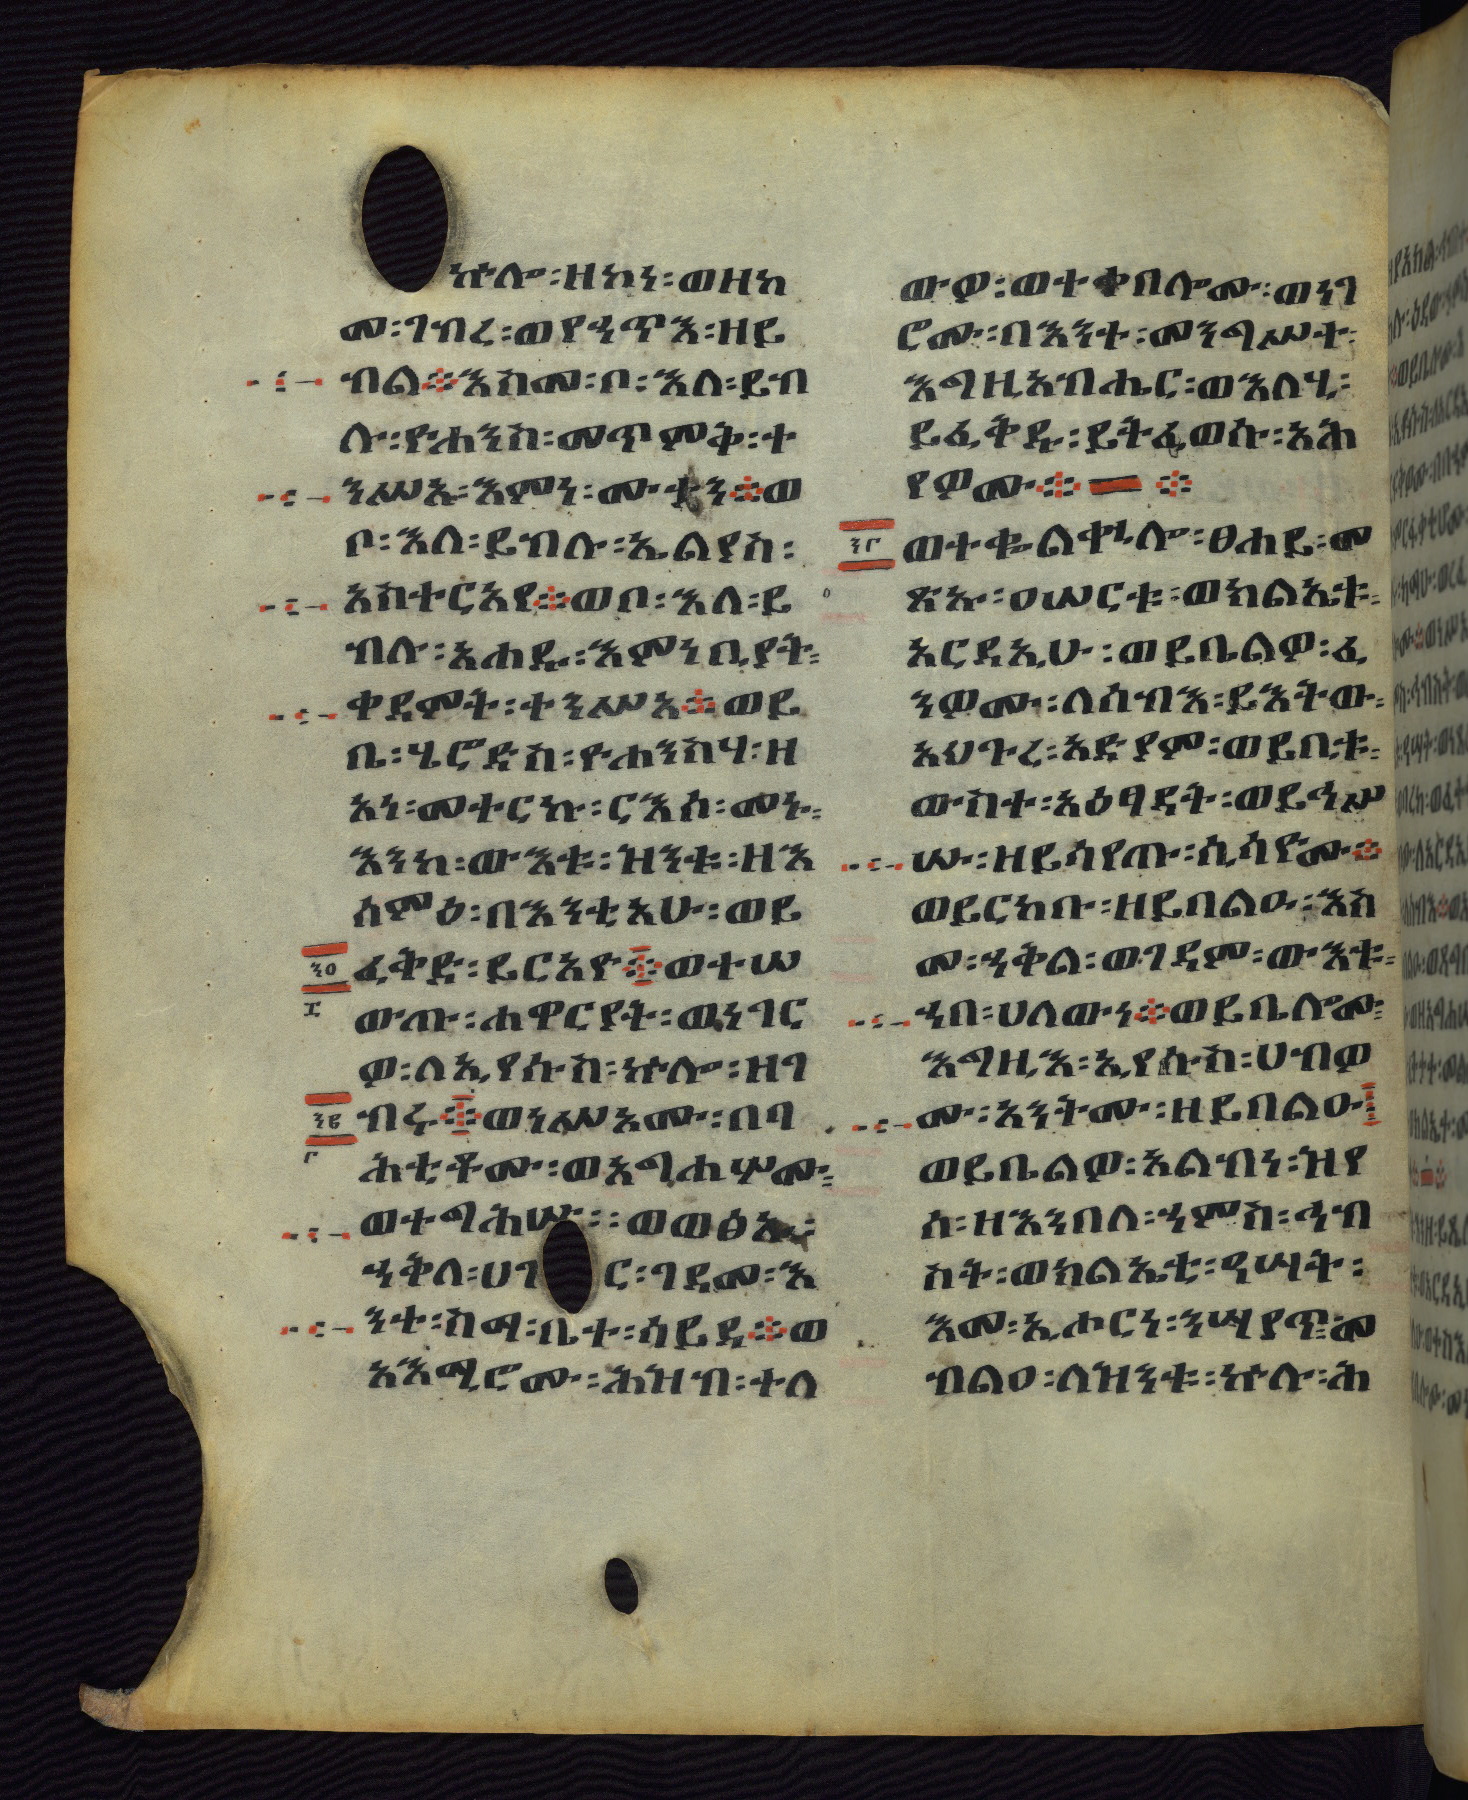 ኵሎ፡ዘኮነ፡ወዘከ
መ፡ገብረ፡ወየኀጥእ፡ዘይ
ብል፨እስመ፡ቦ፡እለ፡ይብ
ሉ፡ዮሐንስ፡መጥምቅ፡ተ
ንሥአ፡እምነ፡ሙታን፨ወ
ቦ፡እለ፡ይብሉ፡ኢልያስ፡
አስተርአየ፨ወቦ፡እለ፡ይ
ብሉ፡አሐዱ፡እምነቢያት፡
ቀደምት፡ተንሥአ፨ወይ
ቤ፡ሄሮድስ፡ዮሐንስሃ፡ዘ
አነ፡መተርኩ፡ርእሶ፡መኑ፡
እንከ፡ውእቱ፡ዝንቱ፡ዘእ
ሰምዕ፡በእንቲአሁ፡ወይ
ፈቅድ፡ይርአዮ፨ወተሠ
፳፬
፲
ውጡ፡ሐዋርያት፡ወነገር
ዎ፡ለኢየሱስ፡ኵሎ፡ዘገ
ብሩ፨ወነሥአሙ፡በባ
፳፭
፫
ሕቲቶሙ፡ወአግሐሦሙ፡
ወተግሕሡ፡፡ወወፅኡ፡
ኀቅለ፡ሀገር፡ገዳመ፡እ
ንተ፡ስማ፡ቤተ፡ሳይዳ፨ወ
አእሚሮሙ፡ሕዝብ፡ተለ
ውዎ፡ወተቀበሎሙ፡ወነገ
ሮሙ፡በእንተ፡መንግሥተ፡
እግዚአብሔር፡ወእለሂ፡
ይፈቅዱ፡ይትፈወሱ፡አሕ
የዎሙ፨፨
፳፮
ወተቈልቈሎ፡ፀሐይ፡መ
ጽኡ፡ዐሠርቱ፡ወክልኤቱ፡
አርዳኢሁ፡ወይቤልዎ፡ፈ
ንዎሙ፡ለሰብእ፡ይእትው፡
አህጉረ፡አድያም፡ወይቢቱ፡
ውስተ፡አዕፃዳት፡ወይኅሥ
ሡ፡ዘይሳየጡ፡ሲሳዮሙ፨
ወይርከቡ፡ዘይበልዑ፡እስ
መ፡ኀቅል፡ወገዳም፡ውእቱ፡
ኀበ፡ሀለውነ፨ወይቤሎሙ፡
እግዚእ፡ኢየሱስ፡ሀብዎ
ሙ፡አንትሙ፡ዘይበልዑ፨
ወይቤልዎ፡አልብነ፡ዝየ
ሰ፡ዘእንበለ፡ኀምስ፡ኅብ
ስት፡ወክልኤቲ፡ዓሣት፡
እመ፡ኢሖርነ፡ንሣየጥ፡መ
ብልዐ፡ለዝንቱ፡ኵሉ፡ሕ